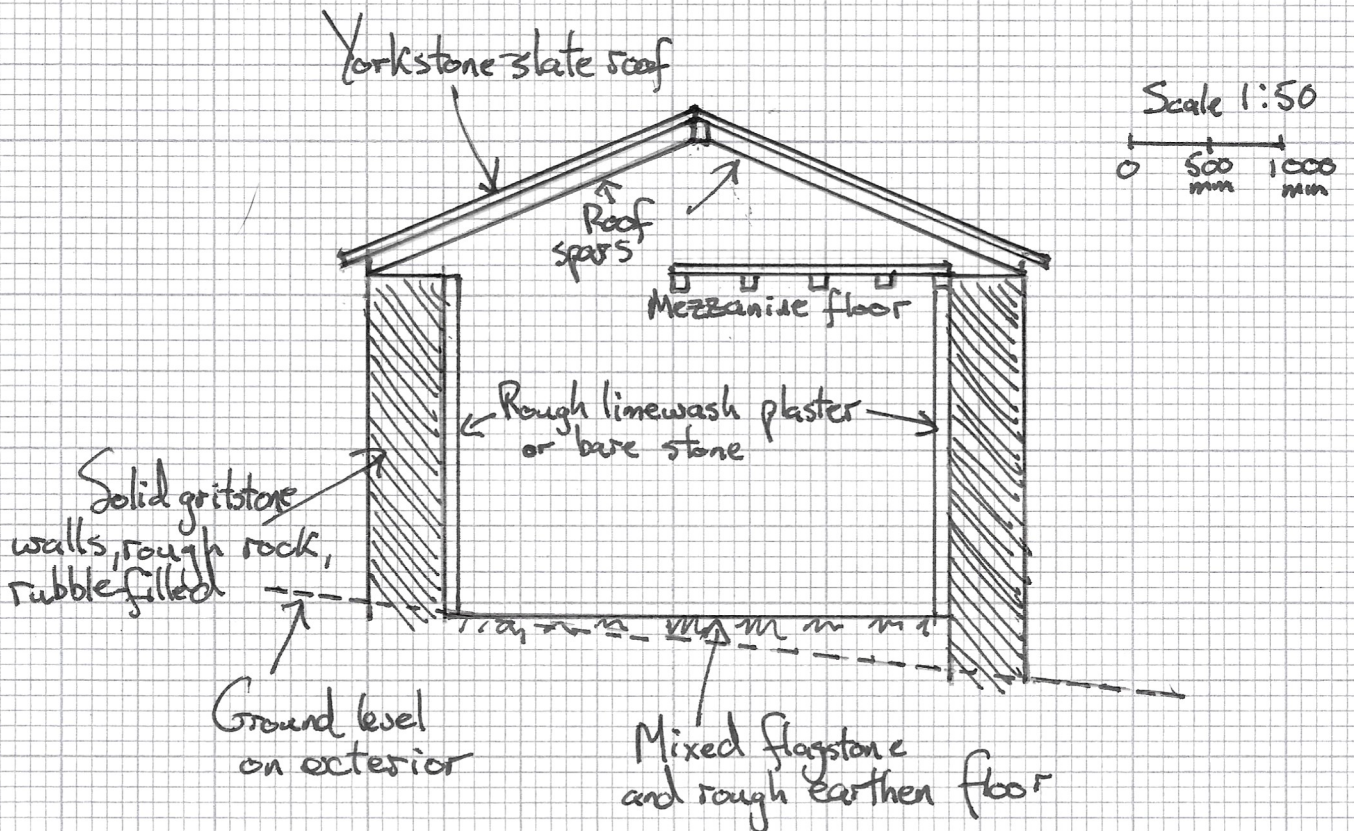 Yorkstone slate roof
Scale 1:50
0 500 mm 1000 mm
Roof
spars
Mezzanine floor
Rough limewash plaster
or bare stone
Solid gritstone
walls, rough rock,
rubble filled
Ground level
on exterior
Mixed flagstone
and rough earthen floor